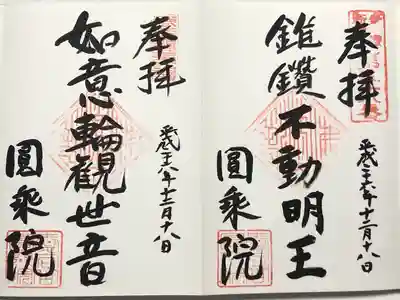 奉拝
平成二十八年十二月十八日
錐鑽不動明王
圓乗院
奉拝
平成二十八年十二月十八日
如意輪観世音
圓乗院